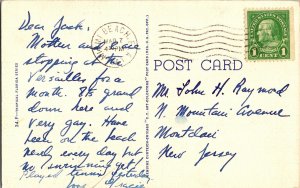 Dear Jack:
Mother and I are
stopping at the
Versailles for a
month. 85 grand
down here and
very gay. Have
been on the beach
nearly every day but
no swimming yet
Played tennis yesterday
BEACH,
POST CARD
UNITED STATES POSTAGE
1 CENT 1
Mr John H Raymond
N. Mountain Avenue
Montclair
New Jersey